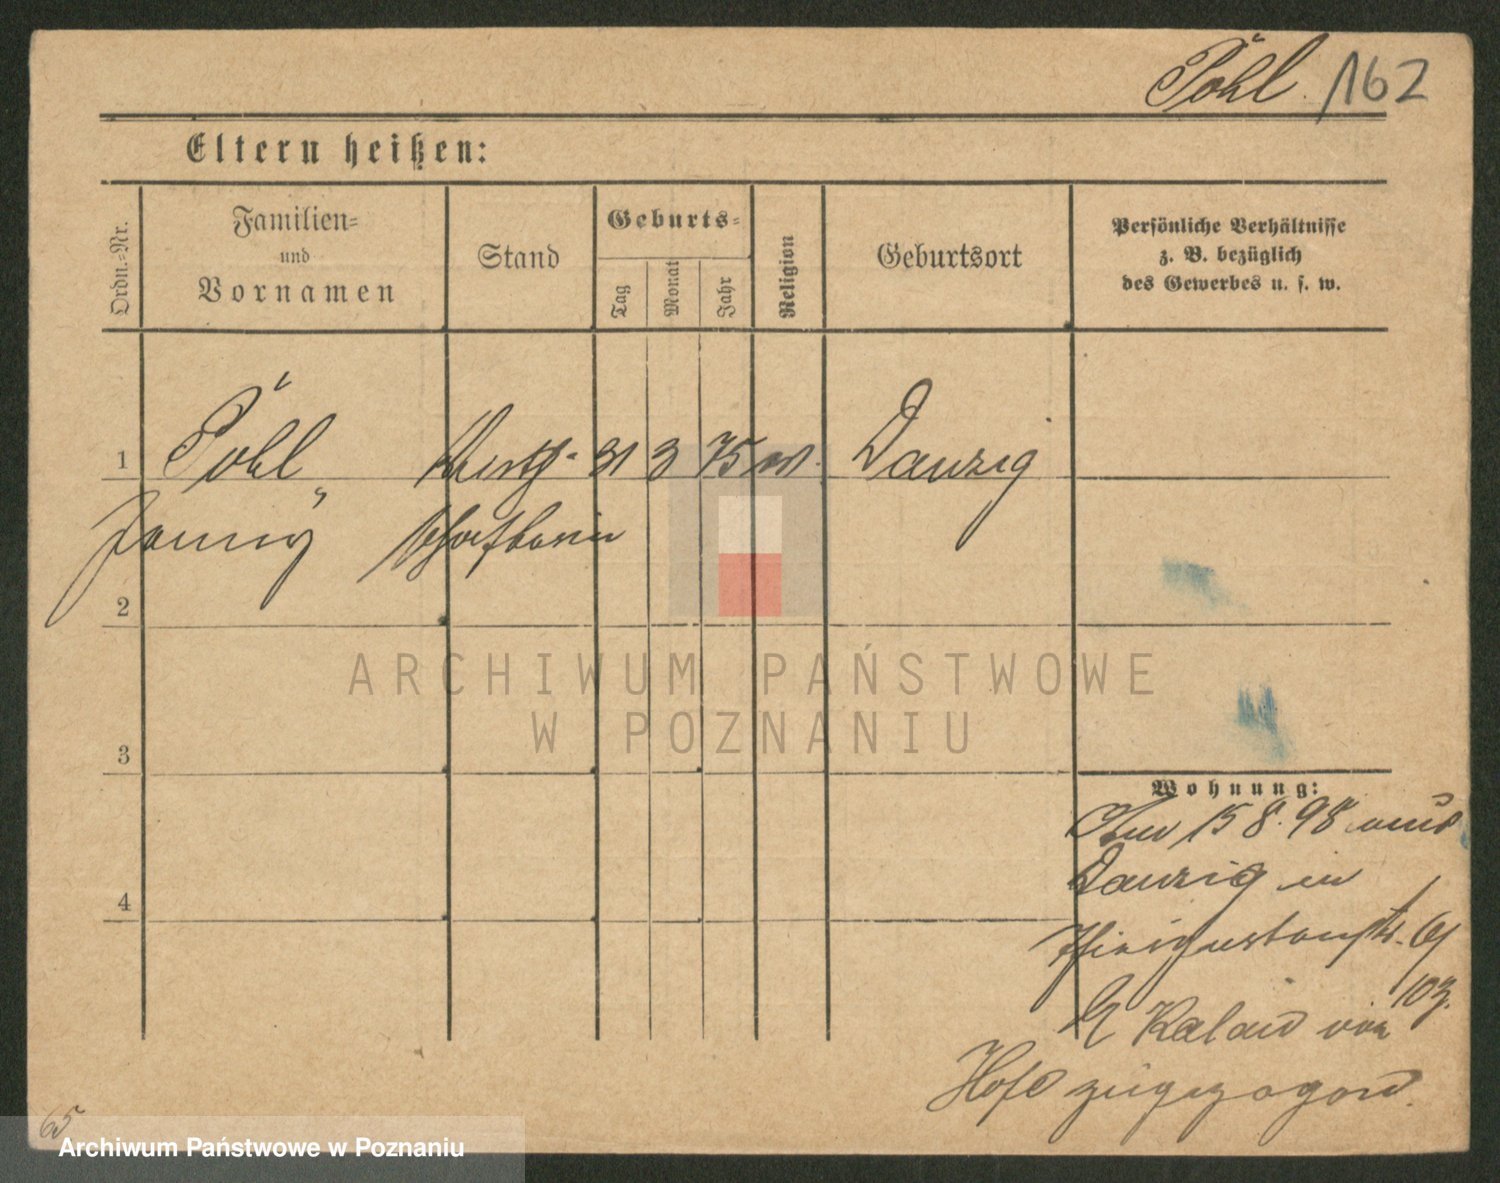 Pöhl. 162
Eltern heißen:
Ordn.=Nr.
Familien=
und
Vornamen
Stand
Geburts=
Tag
Monat
Jahr
Religion
Geburtsort
Persönliche Verhältnisse
z. B. bezüglich
des Gewerbes u. s. w.
1 Pöhl Wirth- 31 3 75 Danzig
Jenny schafterin
2
3
4
Wohnung:
15 8. 98 aus
Danzig in
103.
zugezogen.
65
ARCHIWUM PAŃSTWOWE
W POZNANIU
Archiwum Państwowe w Poznaniu